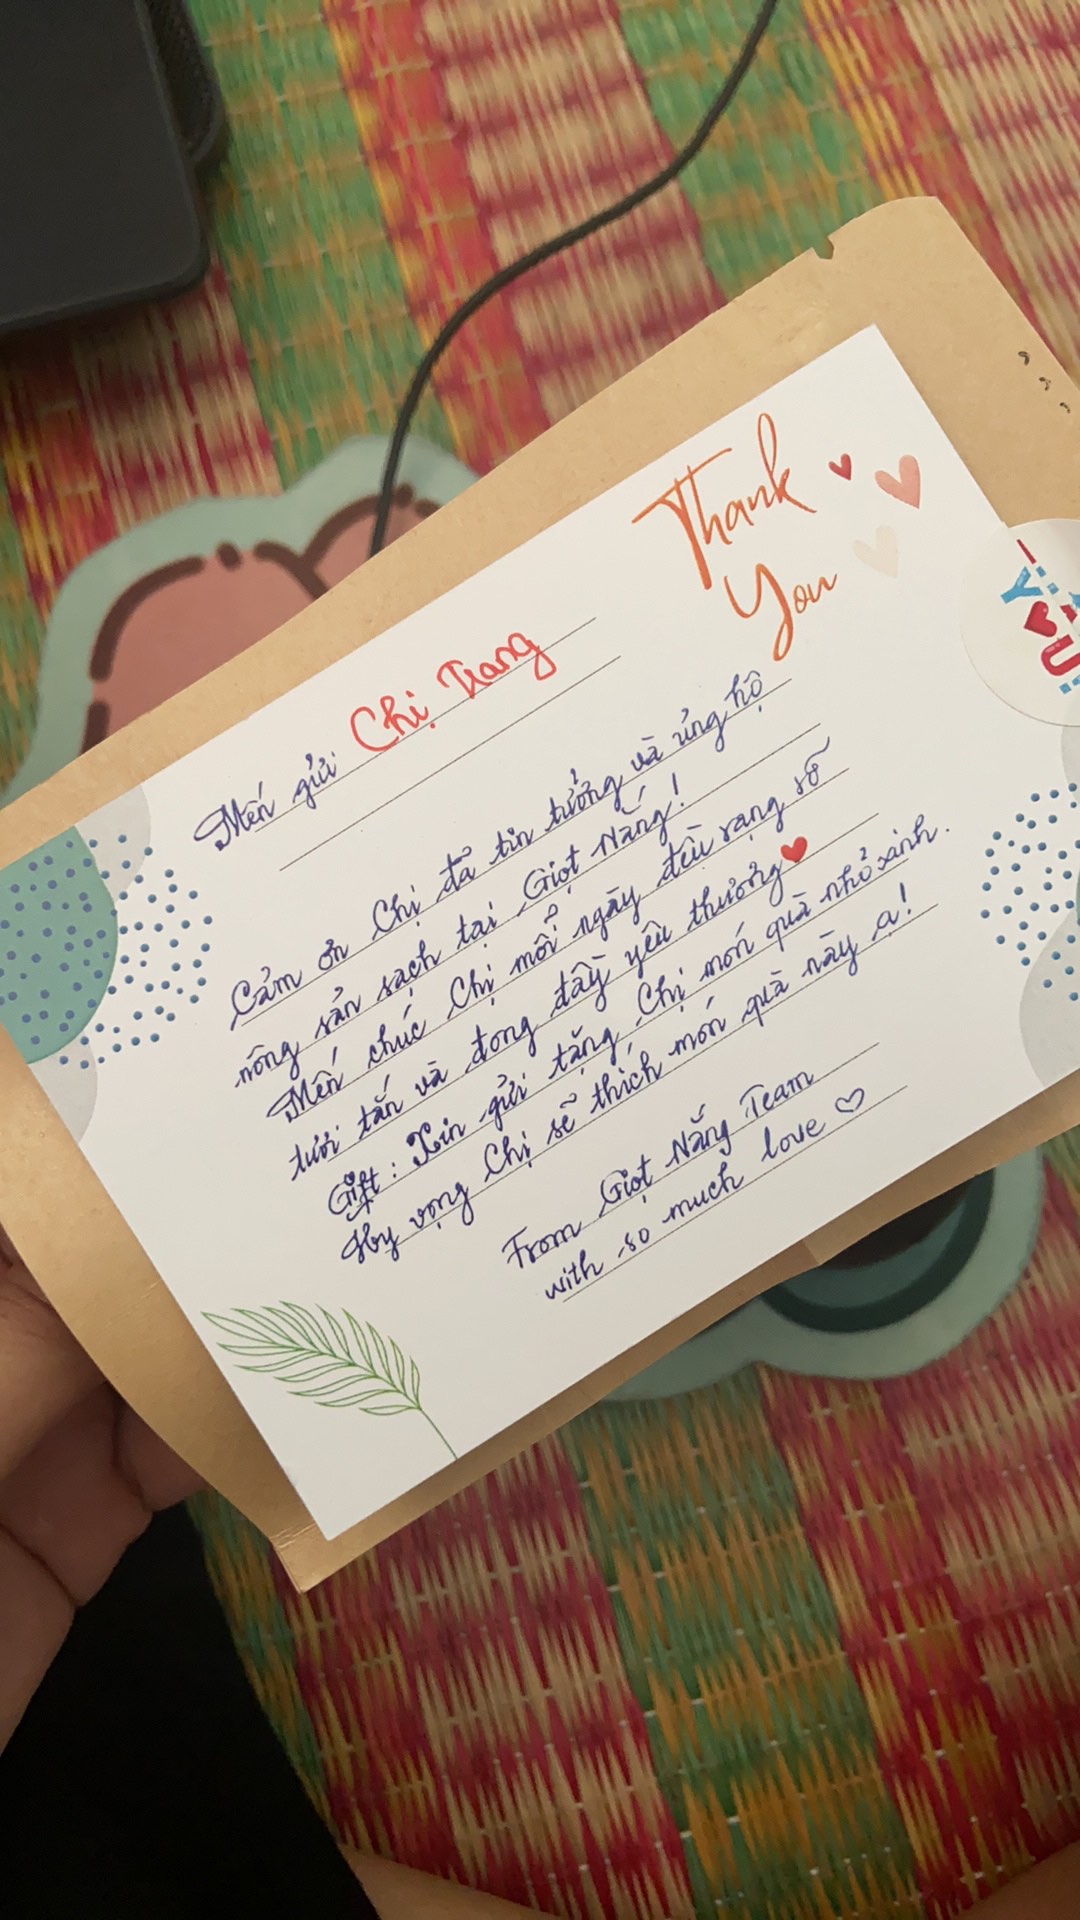 Thank
You
Mến gửi Chị Trang
Cảm ơn Chị đã tin tưởng và ủng hộ
nông sản sạch tại Giọt Nắng!
Mến chúc Chị mỗi ngày đều rạng rỡ
tươi tắn và đong đầy yêu thương
Gift: Xin gửi tặng Chị món quà nhỏ xinh.
Hy vọng Chị sẽ thích món quà này ạ!
From Giọt Nắng Team
with so much love